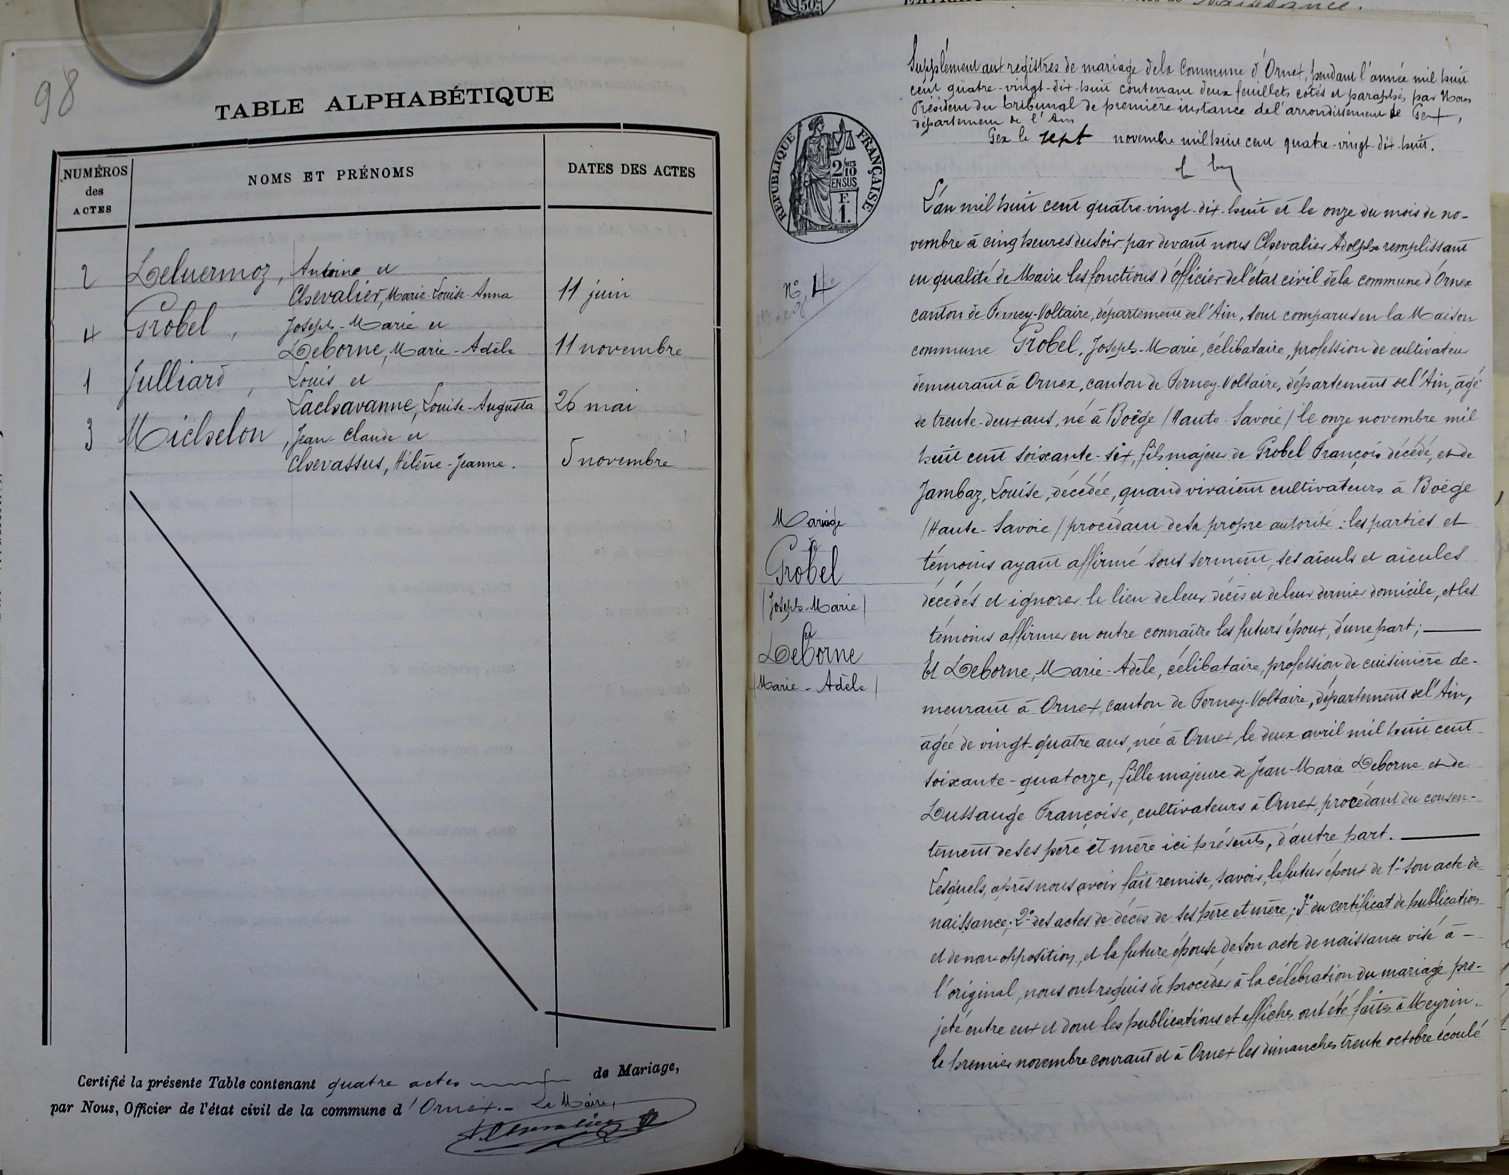 98
TABLE ALPHABÉTIQUE
NUMÉROS des ACTES
NOMS ET PRÉNOMS
DATES DES ACTES
2 Deluermoz, Antoine et
Chevalier, Marie-Louise-Anna 11 juin
4 Grobel, Joseph-Marie et
Deborne, Marie-Adèle 11 novembre
1 Julliard, Louis et
Lachavanne, Louise-Augusta 26 mai
3 Michelon, Jean-Claude et
Chevassus, Hélène-Jeanne. 5 novembre
Certifié la présente Table contenant quatre actes de Mariage,
par Nous, Officier de l'état civil de la commune d'Ornex.- Le Maire,
Supplément aux registres de mariage de la commune d'Ornex, pendant l'année mil huit
cent quatre-vingt-dix-huit contenant deux feuillets cotés et paraphés, par Nous
Président du tribunal de première instance de l'arrondissement de Gex,
département de l'Ain
Gex le sept novembre mil huit cent quatre-vingt-dix-huit.
RÉPUBLIQUE FRANÇAISE
2/10 EN SUS
F. 1
N° 4
L'an mil huit cent quatre-vingt-dix-huit et le onze du mois de no-
vembre à cinq heures du soir par devant nous Chevalier Adolphe remplissant
en qualité de Maire les fonctions d'officier de l'état civil de la commune d'Ornex
canton de Ferney-Voltaire, département de l'Ain, sont comparus en la Maison
commune Grobel, Joseph-Marie, célibataire, profession de cultivateur
demeurant à Ornex, canton de Ferney-Voltaire, département de l'Ain, âgé
de trente-deux ans, né à Boëge (Haute-Savoie) le onze novembre mil
huit cent soixante-six, fils majeur de Grobel François décédé, et de
Jambaz, Louise, décédée, quand vivaient cultivateurs à Boëge
(Haute-Savoie) procédant de sa propre autorité : les parties et
témoins ayant affirmé sous serment, ses aïeuls et aïeules
décédés et ignorer le lieu de leur décès et de leur dernier domicile, et les
témoins affirmer en outre connaître les futurs époux, d'une part;
Et Deborne, Marie-Adèle, célibataire, profession de cuisinière de-
meurant à Ornex, canton de Ferney-Voltaire, département de l'Ain,
âgée de vingt-quatre ans, née à Ornex, le deux avril mil huit cent
soixante-quatorze, fille majeure de Jean-Marie Deborne et de
Dussauge Françoise, cultivateurs à Ornex, procédant du consen-
tement de ses père et mère ici présents, d'autre part.
Lesquels, après nous avoir fait remise, savoir, le futur époux de 1° son acte de
naissance; 2° des actes de décès de ses père et mère; 3° du certificat de publication
et de non opposition, et la future épouse de son acte de naissance visé à
l'original, nous ont requis de procéder à la célébration du mariage pro-
jeté entre eux et dont les publications et affiches ont été faites à Meyrin
le premier novembre courant et à Ornex les dimanches trente octobre écoulé
Mariage
Grobel
(Joseph-Marie)
Deborne
(Marie-Adèle)